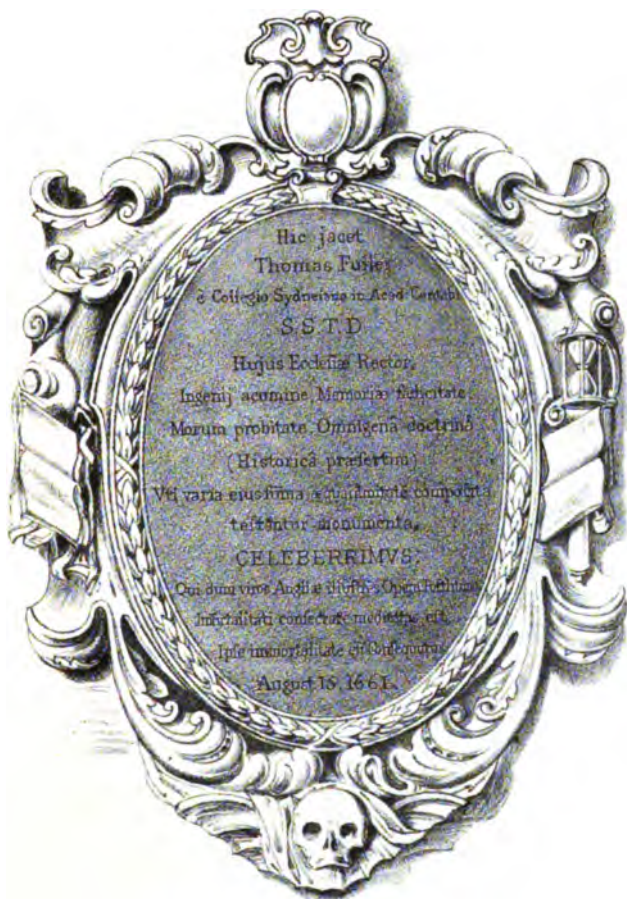 Hic jacet
Thomas Fuller
è Collegio Sydneiano in Acad Cantabr
S.S.T.D
Hujus Ecclesiæ Rector,
Ingenij acumine Memoriæ fælicitate
Morum probitate Omnigenâ doctrinâ
(Historicâ præsertim)
Vti varia eius summa æquanimitate composita
testantur monumenta,
CELEBERRIMVS.
Qui dum viros Angliæ illustres Opere Posthumo
Immortalitati consecrare meditatus est,
Ipse immortalitatē est Consequutus
August 15, 1661.